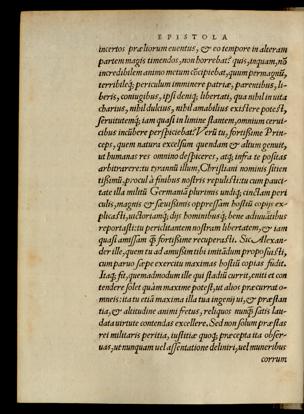 EPISTOLA
incertos præliorum euentus, & eo tempore in alteram
partem magis timendos, non horrebat? quis, inquam, nõ
incredibilem animo metum cõcipiebat, quum permagnũ,
terribileq́; periculum imminere patriæ, parentibus, li-
beris, coniugibus, ipsi deniq́; libertati, qua nihil in uita
charius, nihil dulcius, nihil amabilius existere potest,
seruitutemq́; iam quasi in limine stantem, omnium cerui-
cibus incũbere perspiciebat? Verũ tu, fortissime Prin-
ceps, quem natura excelsũ quendam & altum genuit,
ut humanas res omnino despiceres, atq́; infra te positas
arbitrarere: tu tyrannũ illum, Christiani nominis sitien
tissimũ, procul à finibus nostris repulisti: tu cum pauci-
tate illa militũ Germanã plurimis undiq́; cinctam peri
culis, magnis & sæuissimis oppressam hostiũ copijs ex-
plicasti, uictoriamq́; dijs hominibusq́; bene adiuuãtibus
reportasti: tu periclitantem nostram libertatem, & iam
quasi amissam q̃ fortissime recuperasti. Sic Alexan-
der ille, quem tu ad amussim tibi imitãdum proposuisti,
cum paruo sæpe exercitu maximas hostiũ copias fudit.
Itaq́; fit, quemadmodum ille qui stadiũ currit, eniti et con
tendere solet quàm maxime potest, ut alios præcurrat o-
mneis: ita tu etiã maxima illa tua ingenij ui, & præstan
tia, & altitudine animi fretus, reliquos nunq̃ satis lau-
data uirtute contendas excellere. Sed non solum præstas
rei militaris peritia, iustitiæ quoq́; præcepta ita obser-
uas, ut nunquam uel assentatione deliniri, uel muneribus
corrum